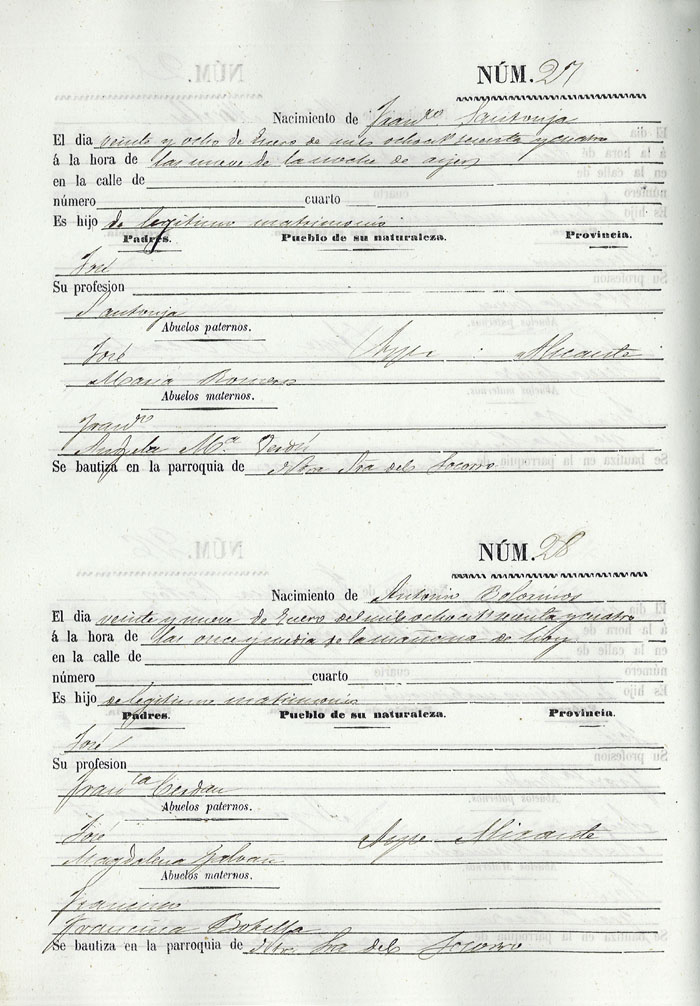 NÚM. 27
Nacimiento de Fran.co Santonja
El dia veinte y ocho de Enero de mil ochoct. sesenta y cuatro
á la hora de las nueve de la noche de ayer
en la calle de
número cuarto
Es hijo de legitimo matrimonio
Padres. Pueblo de su naturaleza. Provincia.
José
Su profesion
Santonja
Abuelos paternos.
José Aspe Alicante
Maria Romero
Abuelos maternos.
Fran.co
Angela M.a Verdú
Se bautiza en la parroquia de Ntra Sra del Socorro
NÚM. 28
Nacimiento de Antonio
El dia veinte y nueve de Enero del mil ochoct. sesenta y cuatro
á la hora de las once y media de la mañana de hoy
en la calle de
número cuarto
Es hijo de legitimo matrimonio
Padres. Pueblo de su naturaleza. Provincia.
José
Su profesion
Fran.ca Cerdan
Abuelos paternos.
José Aspe Alicante
Magdalena Galvañ
Abuelos maternos.
Francisco
Francisca Botella
Se bautiza en la parroquia de Ntra Sra del Socorro